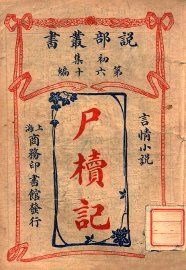 說部叢書
初集
第六十編
言情小說
尸櫝記
上海商務印書館發行